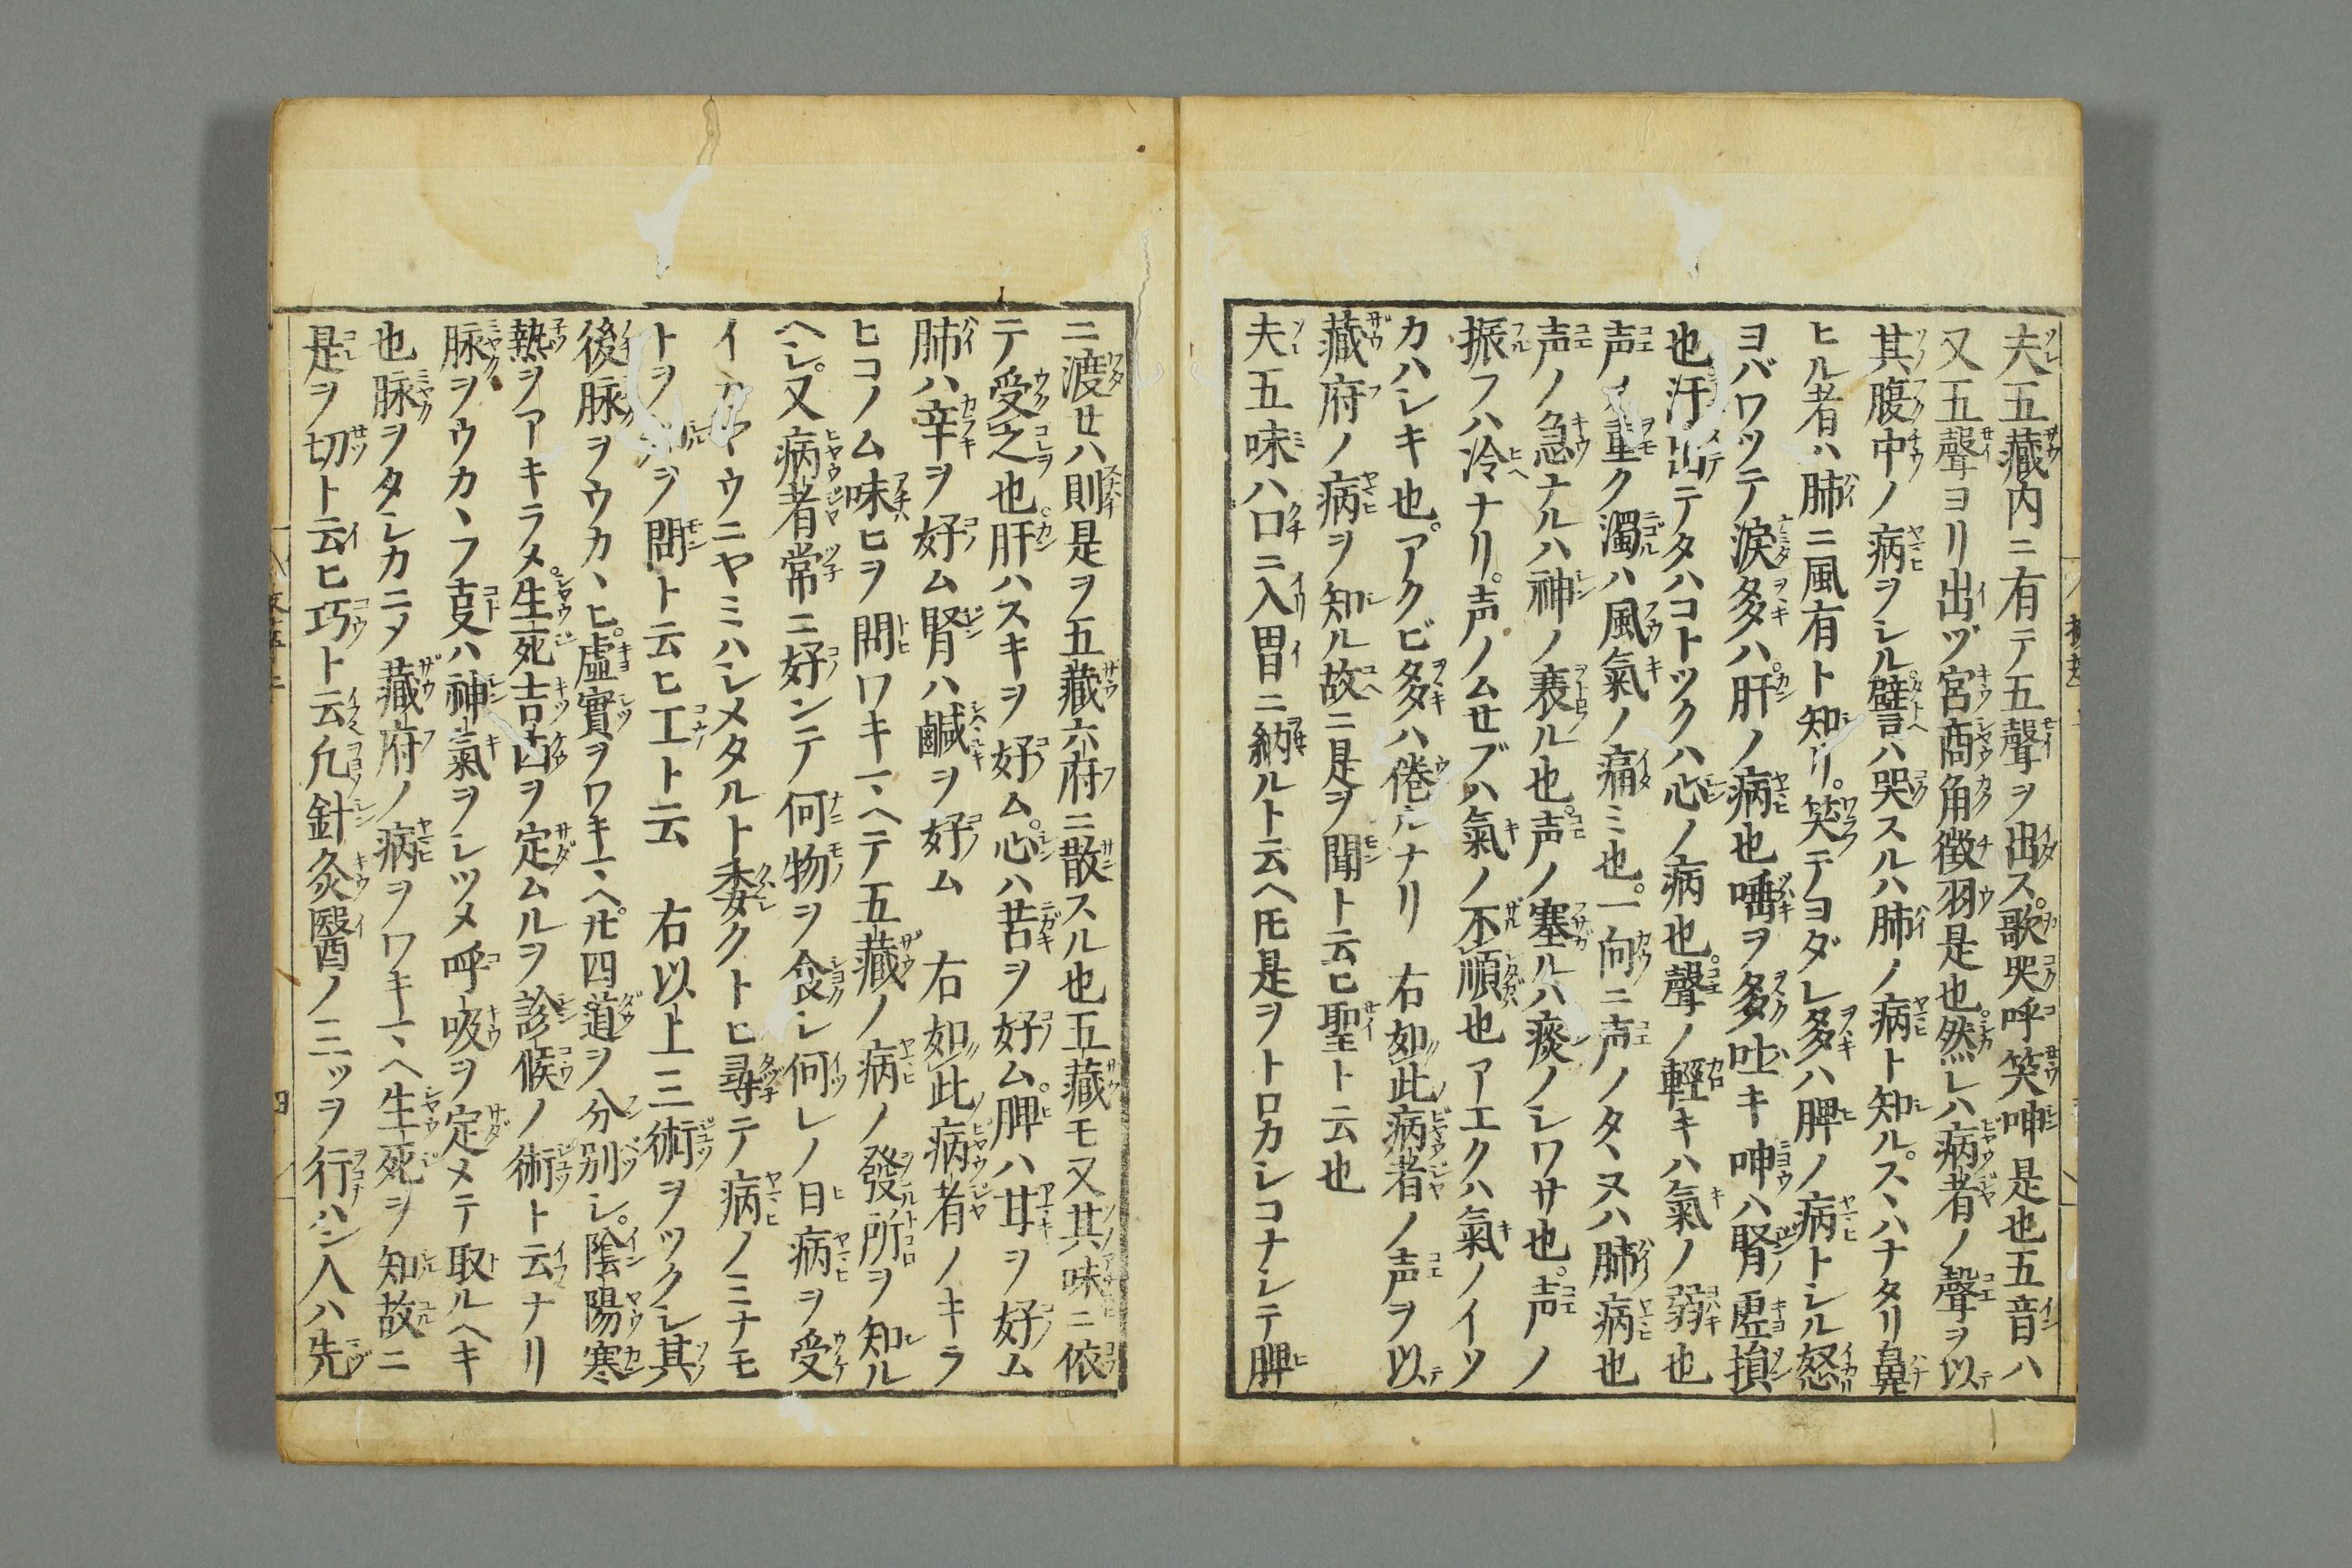 夫五藏内ニ有テ五聲ヲ出ス。歌哭呼笑呻是也五音ハ
又五聲ヨリ出ヅ宮商角徴羽是也。然レハ病者ノ聲ヲ以
其腹中ノ病ヲシル。譬ハ哭スルハ肺ノ病ト知ル。スヽハナタリ鼻
ヒル者ハ肺ニ風有ト知リ。笑テヨダレ多ハ脾ノ病トシル怒
ヨバワツテ涙多ハ肝ノ病也唾ヲ多吐キ呻ハ腎ノ虚損
也汗出テタハコトツクハ心ノ病也。聲ノ輕キハ氣ノ弱也
声ノ重ク濁ハ風氣ノ痛ミ也。一向ニ声ノタヽヌハ肺ノ病也
声ノ急ナルハ神ノ衰ル也。声ノ塞ルハ痰ノシワサ也。声ノ
振フハ冷ナリ。声ノムせブハ氣ノ不順也アエクハ氣ノイツ
カハシキ也。アクビ多ハ倦ルナリ　右如此病者ノ声ヲ以
藏府ノ病ヲ知ル故ニ是ヲ聞ト云ヒ聖ト云也
夫五味ハ口ニ入胃ニ納ルト云ヘ𪜈是ヲトロカシコナシテ脾
ニ渡せハ則是ヲ五藏六府ニ散スル也五藏モ又其味ニ依
テ受之也。肝ハスキヲ好ム。心ハ苦ヲ好ム。脾ハ甘ヲ好ム
肺ハ辛ヲ好ム腎ハ鹹ヲ好ム　右如此病者ノキラ
ヒコノム味ヒヲ問ワキマヘテ五藏ノ病ノ發所ヲ知ル
ヘシ。又病者常ニ好ンテ何物ヲ食シ何レノ日病ヲ受
イカヤウニヤミハシメタルト委クトヒ尋テ病ノミナモ
トヲヲ問ト云ヒ工ト云　右以上三術ヲツクシ其
後脉ヲウカヽヒ。虚實ヲワキマヘ𪜈四道ヲ分別シ。陰陽寒
熱ヲアキラメ。生死吉凶ヲ定ムルヲ診候ノ術ト云ナリ
脉ヲウカヽフ㕝ハ神氣ヲシツメ呼吸ヲ定メテ取ルヘキ
也脉ヲタシカニメ藏府ノ病ヲワキマヘ生死ヲ知故ニ
是ヲ切ト云ヒ巧ト云凢針灸醫ノ三ツヲ行ハン人ハ先
四